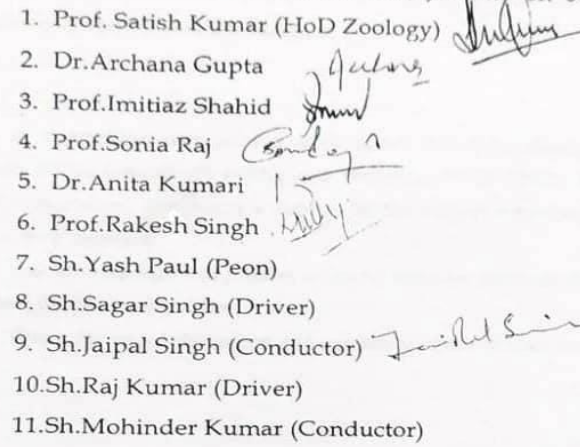 1. Prof. Satish Kumar (HoD Zoology)
2. Dr.Archana Gupta
3. Prof.Imitiaz Shahid
4. Prof.Sonia Raj
5. Dr.Anita Kumari
6. Prof.Rakesh Singh
7. Sh.Yash Paul (Peon)
8. Sh.Sagar Singh (Driver)
9. Sh.Jaipal Singh (Conductor)
10.Sh.Raj Kumar (Driver)
11.Sh.Mohinder Kumar (Conductor)